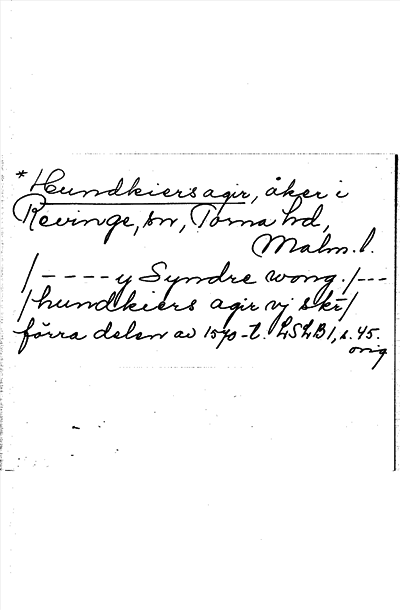 * Hundkiers agir, åker i
Revinge, sn, Torna hd,
Malm. l.
/---- y Syndre wong. /---
/hundkiers agir vj skr/
förra delen av 1570-t. LSLB1, s. 45.
orig